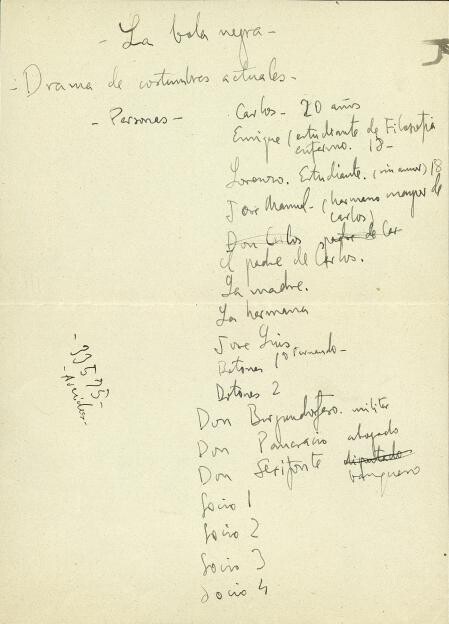 - La bola negra -
- Drama de costumbres actuales -
- Personas -
Carlos - 20 años
Enrique (estudiante de Filosofía
enfermo. 18 -
Lorenzo. Estudiante. (sin amor) 18
Jose Manuel - (hermano mayor de
Carlos)
Don Carlos padre de Car
el padre de Carlos.
La madre.
La hermana
Jose Luis
Botones 1º Fernando -
Botones 2
Don militar
Don Pancracio abogado
Don diputado
banquero
Socio 1
Socio 2
Socio 3
Socio 4
- 33575 -